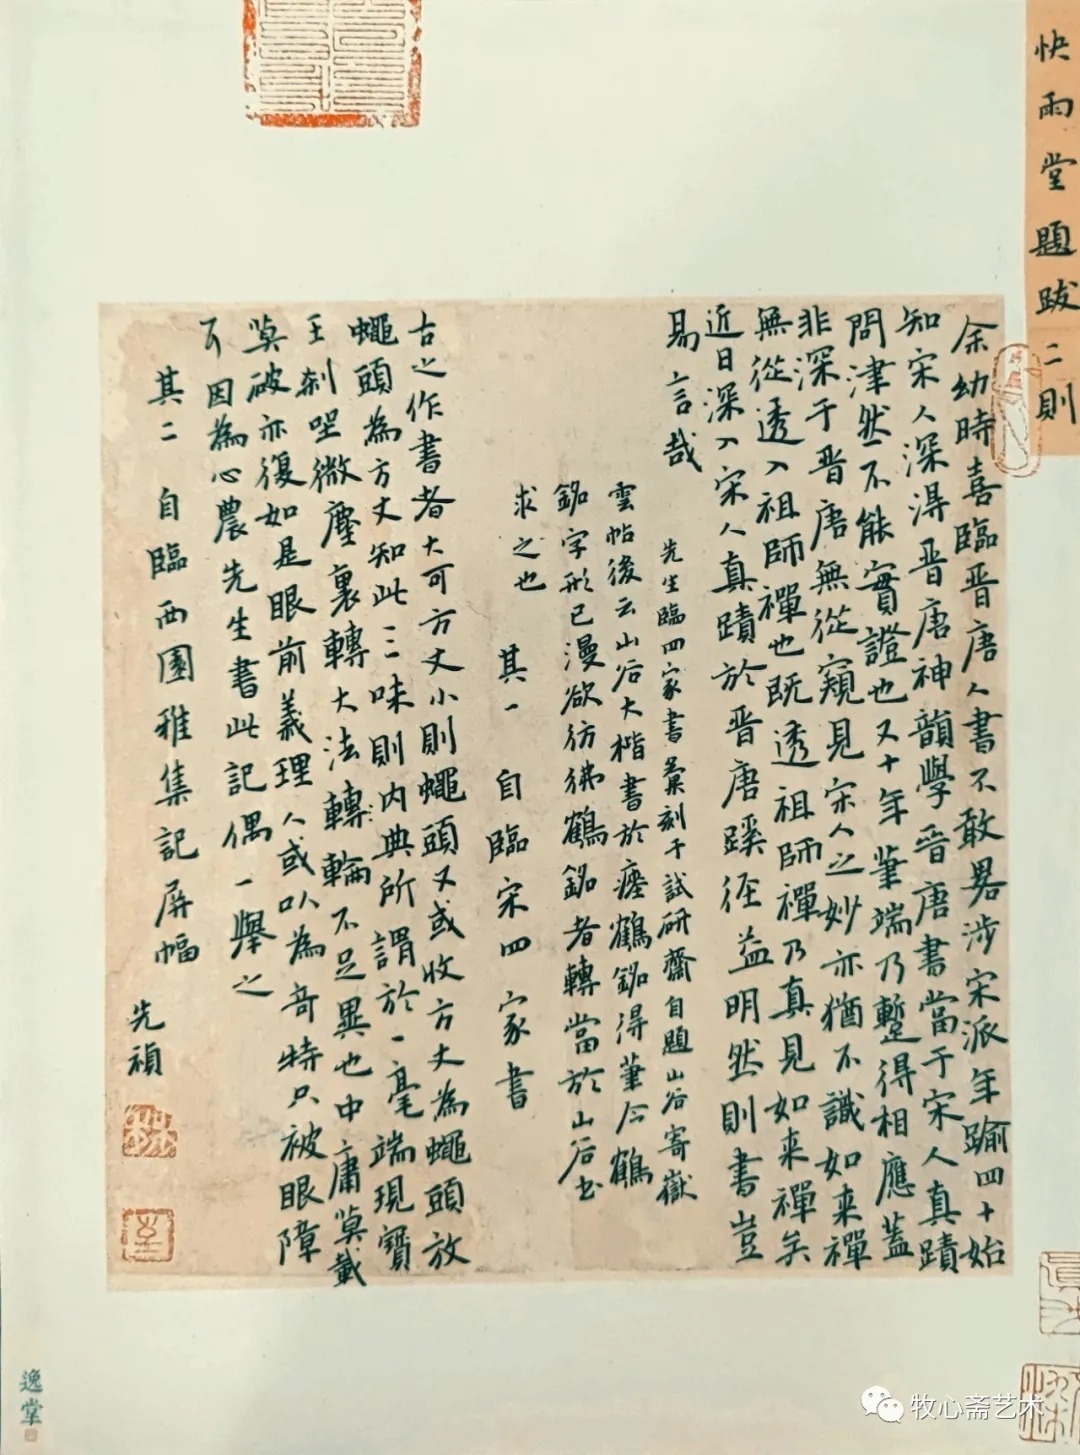 快雨堂題跋二則
余幼時喜臨晋唐人書不敢畧涉宋派年踰四十始
知宋人深得晋唐神韻學晋唐書當于宋人真蹟
問津然不能實證也又十年筆端乃蹔得相應蓋
非深于晋唐無從窺見宋人之妙亦猶不識如来禪
無從透入祖師禪也既透祖師禪乃真見如来禪矣
近日深入宋人真蹟於晋唐蹊徑益明然則書豈
易言哉
先生臨四家書彙刻于試研齋自題山谷寄嶽
雲帖後云山谷大楷書於瘞鶴銘得筆今鶴
銘字形已漫欲彷彿鶴銘者轉當於山谷书
求之也
其一 自臨宋四家書
古之作書者大可方丈小則蠅頭又或收方丈為蠅頭放
蠅頭為方丈知此三味則内典所謂於一毫端現寶
王刹坐微塵裏轉大法轉輪不足異也中庸莫載
莫破亦復如是眼前義理人或以為奇特只被眼障
耳因為心農先生書此記偶一舉之
其二 自臨西園雅集記屏幅
先禎
逸堂
牧心斋艺术